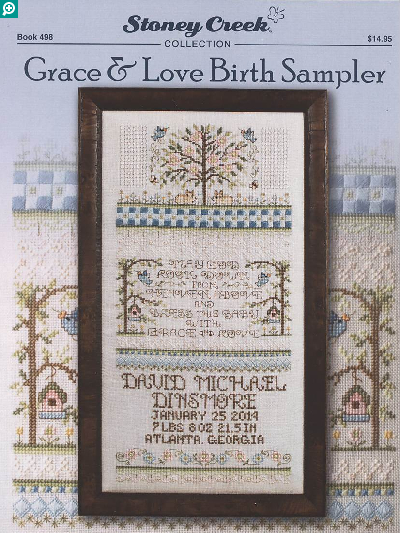 Stoney Creek
COLLECTION
Book 498
$14.95
Grace & Love Birth Sampler
MAY GOD
LOOK DOWN
FROM
HEAVEN ABOVE
AND
BLESS THIS BABY
WITH
GRACE AND LOVE
DAVID MICHAEL
DINSMORE
JANUARY 25 2014
7 LBS 8 OZ 21.5 IN
ATLANTA, GEORGIA